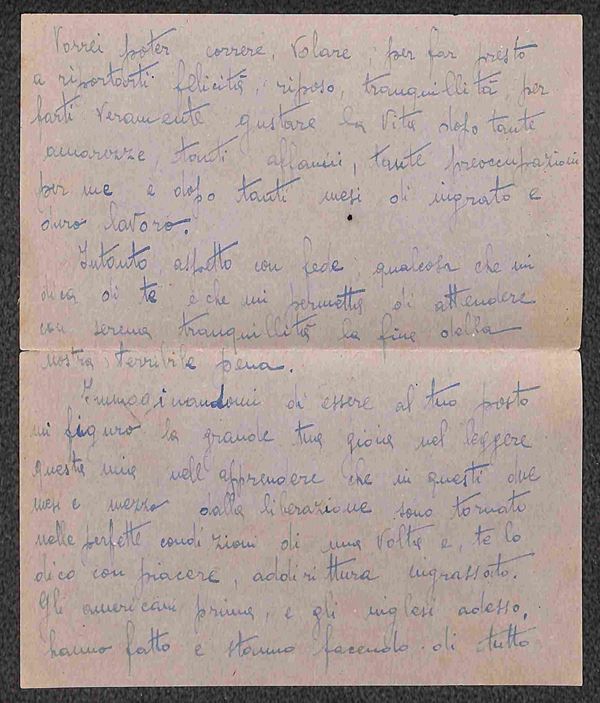 Vorrei poter correre, volare, per far presto
a riportarti felicità, riposo, tranquillità, per
farti veramente gustare la vita dopo tante
amarezze, tanti affanni, tante preoccupazioni
per me e dopo tanti mesi di ingrato e
duro lavoro.
Intanto aspetto con fede qualcosa che mi
dica di te e che mi permetta di attendere
con serena tranquillità la fine della
nostra terribile pena.
Immaginandomi di essere al tuo posto
mi figuro la grande tua gioia nel leggere
questa mia, nell'apprendere che in questi due
mesi e mezzo dalla liberazione sono tornato
nelle perfette condizioni di una volta e, te lo
dico con piacere, addirittura ingrassato.
Gli americani prima, e gli inglesi adesso,
hanno fatto e stanno facendo di tutto